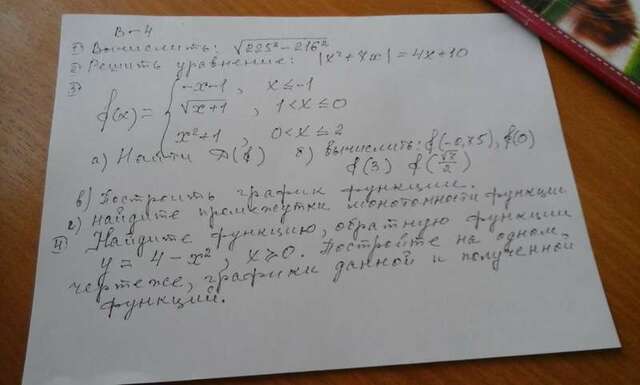 В-4
1) Вычислить: √225² - 216²
2) Решить уравнение: |x² + 4x| = 4x + 10
3)
f(x) = { -x-1, x ≤ -1
√x+1, 1 < x ≤ 0
x²+1, 0 < x ≤ 2
а) Найти D(f) б) Вычислить: f(-0,75), f(0)
f(3) f(√7/2)
в) Построить график функции.
г) Найдите промежутки монотонности функции
4 Найдите функцию, обратную функции
y = 4 - x², x ≥ 0. Постройте на одном
чертеже, графики данной и полученной
функций.